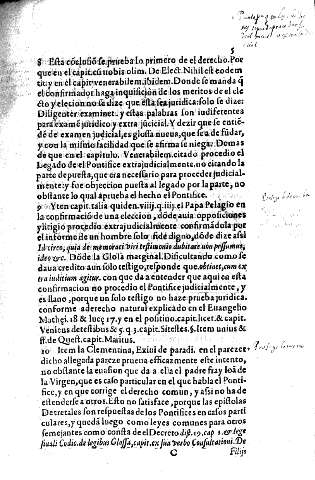 5
8 Esta cõclusiõ se prueba lo primero de el derecho. Por
que en el capit. cum nobis olim. De Elect. Nihil est eodem
tit y en el capit venerabilem. ibidem. Donde se manda q̃
el confirmador haga inquisiciõn de los meritos de el ele
cto y elecion no se dize que esta sea juridica: solo se dize:
Diligenter examinet. y estas palabras son indiferentes
para examẽ juridico y extra judicial. Y dezir que se entiẽ
de de examen judicial, es glossa nueua, que se a de fũdar,
y con la misma facilidad que se afirma se niega. Domas
de que en el capitulo. Venerabilem. citado procedio el
Legado de el Pontifice extrajudicialmente. no citando la
parte depuesta, que era necessario para proceder judicial-
mente: y fue objection puesta al legado por la parte, no
obstante lo qual aprueba el hecho el Pontifice.
9 Yten capit. talia quidem. viii. q. iii. el Papa Pelagio en
la confirmaciõ de vna eleccion, dõde auia opposiciones
y litigio procedio extrajudicialmente confirmãdola por
el informe de un hombre solo fide digno, dõde dize assi
Id circo, quia de memorati viri testimonio dubitare non possumus,
ideo &c. Dõde la Glossa marginal. Dificultando como se
daua credito a un solo testigo, responde que obtinet, cum ex
tra iuditium agitur. con que da a entender que aqui en esta
confirmacion no procedio el Pontifice judicialmente, y
es llano, porque un solo testigo no haze prueba juridica.
conforme a derecho natural explicado en el Euangelio
Mathei. 18 & luc&#x0119; 17. y en el positiuo. capit. licet. & capit.
Veniens de testibus & 5. q. 3. capit. Si testes. §. Item unius &
ff. de Quest. capit. Maritus.
10 Item la Clementina, Exiui de paradi. en el parecer
dicho allegada parece prueua eficazmente este intento,
no obstante la euasion que da a ella el padre fray loâ de
la Virgen, que es caso particular en el que habla el Ponti-
fice, y en que corrige el derecho comun, y assi no ha de
estenderse a otros. Esto no satisface, porque las epistolas
Decretales son respuestas de los Pontifices en casos parti
culares, y quedã luego como leyes comunes para otros
semejantes como consta de el Decreto dist. 19. cap. 1. et lege
finali Codic. de legibus Glossa, capit. ex sua verbo Consultationi. De
C Filijs